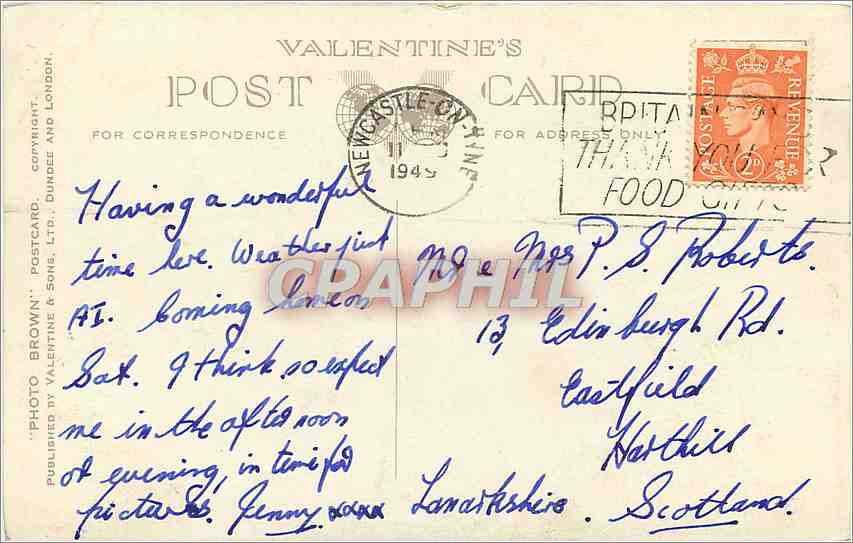 VALENTINE'S
POST CARD
FOR CORRESPONDENCE
FOR ADDRESS ONLY
"PHOTO BROWN" POSTCARD. COPYRIGHT.
PUBLISHED BY VALENTINE & SONS, LTD., DUNDEE AND LONDON.
NEWCASTLE-ON-TYNE
11
1949
BRITAIN
THANK YOU FOR
FOOD GIFTS
POSTAGE REVENUE
2D
Having a wonderful
time here. Weather just
A1. Coming home on
Sat. I think so expect
me in the afternoon
or evening, in time for
pictures. Jenny xxxx
Mr & Mrs P. S. Roberts.
13, Edinburgh Rd.
Eastfield
Harthill
Lanarkshire.
Scotland.
CPAPHIL